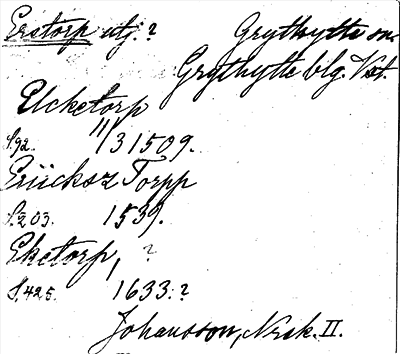 Erstorp utj.? Grythytte sn.
Grythytte blg. Vstl.
Elcketorp
S.92. 11/3 1509.
Eriicksz Torpp
S.203. 1539.
Eketorp, ?
S.425. 1633.?
Johansson, Nrsk. II.